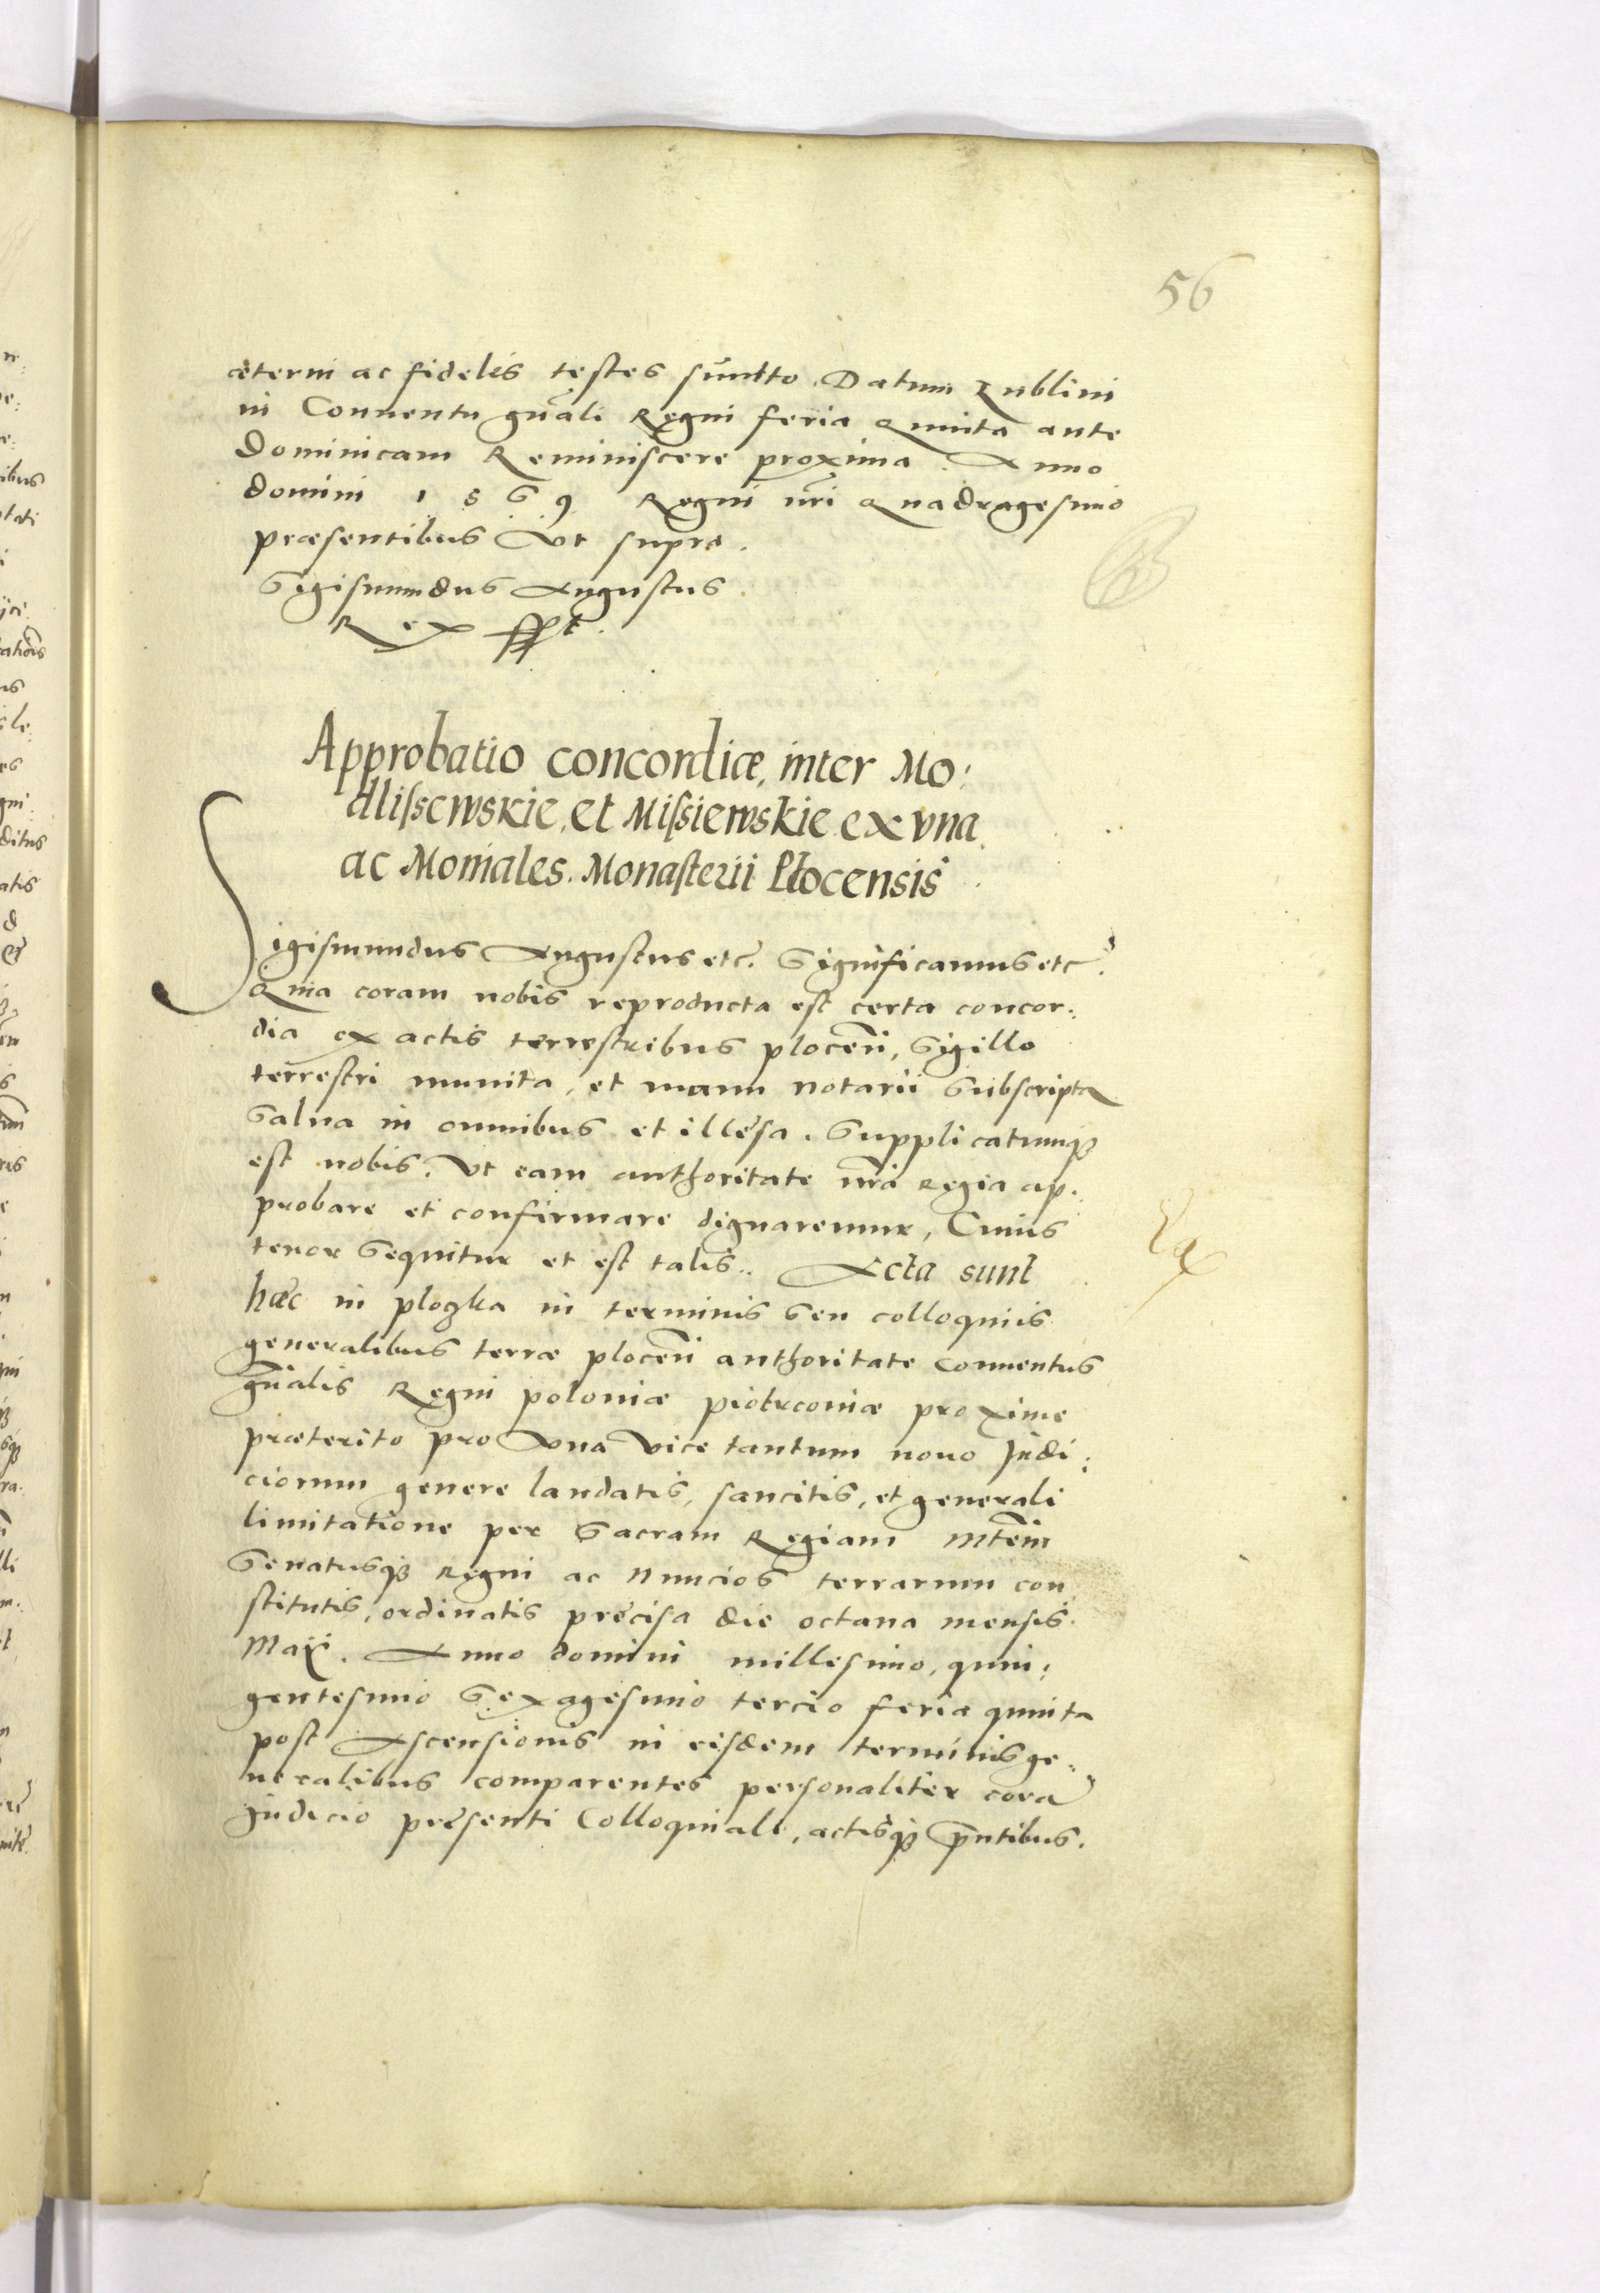 56
æterni ac fideles testes sunto. Datum Lublini
in Conuentu gnāli Regni feria Quinta ante
Dominicam Reminiscere proxima. Anno
Domini 1569 Regni nri Quadragesimo
præsentibus vt supra.
Sigismundus Augustus
Rex sspt.
Approbatio concordiæ, inter Mo:
dlissewskie, et Missiewskie ex vna
ac Moniales. Monasterii Plocensis
Sigismundus Augustus etc. Significamus etc.
Quia coram nobis reproducta est certa concor:
dia ex actis terrestribus plocen̄, Sigillo
terrestri munita, et manu notarii Subscripta
Salua in omnibus et illesa. Supplicatumqȝ
est nobis, vt eam authoritate nrā Regia ap:
probare et confirmare dignaremur, Cuius
tenor Sequitur et est talis.. Acta sunt
hæc in ploczka in terminis Seu colloquiis
generalibus terræ plocen̄ authoritate conuentus
gnālis Regni poloniæ piotrconiæ proxime
præterito pro vna vice tantum nouo Judi:
ciorum genere laudatis, sancitis, et generali
limitatione per Sacram Regiam Mtēm
Senatusqȝ Regni ac Nuncios terrarum con
stitutis, ordinatis precisa die octaua mensis
Maij. Anno domini millesimo, quin:
gentesimo Sexagesimo tercio feria quinta
post Ascensionis in eisdem terminis ge:
neralibus comparentes personaliter corā
Judicio presenti Colloquiali, actisqȝ pn̄tibus.